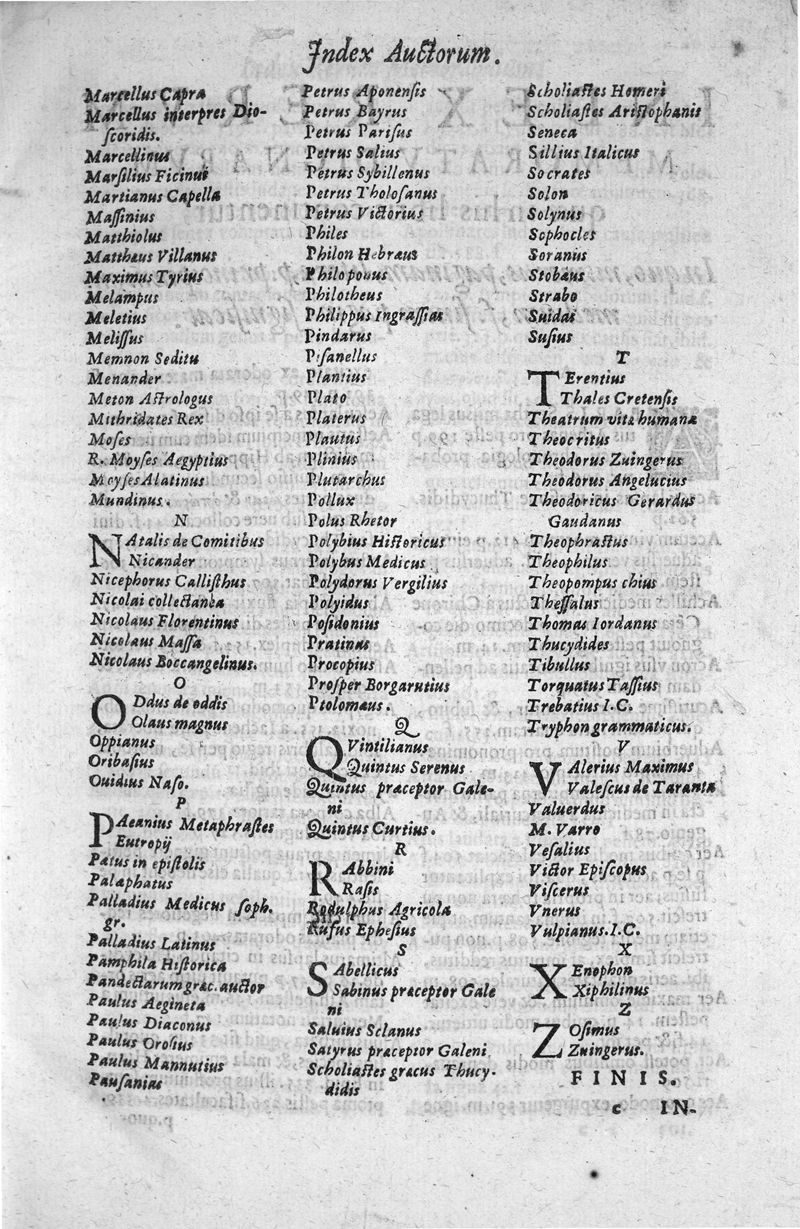 Index Auctorum.
Marcellus Capra
Marcellus interpres Dio-
ſcoridis.
Marcellinus
Marſilius Ficinus
Martianus Capella
Maſſinius
Matthiolus
Matthæus Villanus
Maximus Tyrius
Melampus
Meletius
Meliſſus
Memnon Seditu
Menander
Meton Aſtrologus
Mithridates Rex
Moſes
R. Moyſes Aegyptius
Moyſes Alatinus
Mundinus.
N
NAtalis de Comitibus
Nicander
Nicephorus Calliſthus
Nicolai collectanea
Nicolaus Florentinus
Nicolaus Maſſa
Nicolaus Boccangelinus.
O
ODdus de oddis
Olaus magnus
Oppianus
Oribaſius
Ouidius Naſo.
P
PAeanius Metaphraſtes
Eutropij
Pætus in epiſtolis
Palæphatus
Palladius Medicus ſoph.
gr.
Palladius Latinus
Pamphila Hiſtorica
Pandectarum græc. auctor
Paulus Aegineta
Paulus Diaconus
Paulus Oroſius
Paulus Mannutius
Pauſanias
Petrus Aponenſis
Petrus Bayrus
Petrus Pariſus
Petrus Salius
Petrus Sybillenus
Petrus Tholoſanus
Petrus Victorius
Philes
Philon Hebræus
Philoponus
Philotheus
Philippus Ingraſſias
Pindarus
Piſanellus
Plantius
Plato
Platerus
Plautus
Plinius
Plutarchus
Pollux
Polus Rhetor
Polybius Hiſtoricus
Polybus Medicus
Polydorus Vergilius
Polyidus
Poſidonius
Pratinas
Procopius
Proſper Borgarutius
Ptolomæus.
Q
QVintilianus
Quintus Serenus
Quintus præceptor Gale-
ni
Quintus Curtius.
R
RAbbini
Raſis
Rodulphus Agricola
Rufus Epheſius
S
SAbellicus
Sabinus præceptor Gale
ni
Saluius Sclanus
Satyrus præceptor Galeni
Scholiaſtes græcus Thucy-
didis
Scholiaſtes Homeri
Scholiaſtes Ariſtophanis
Seneca
Sillius Italicus
Socrates
Solon
Solynus
Sophocles
Soranus
Stobæus
Strabo
Suidas
Suſius
T
TErentius
Thales Cretenſis
Theatrum vitæ humanæ
Theocritus
Theodorus Zuingerus
Theodorus Angelucius
Theodoricus Gerardus
Gaudanus
Theophraſtus
Theophilus
Theopompus chius
Theſſalus
Thomas Iordanus
Thucydides
Tibullus
Torquatus Taſſius
Trebatius I.C.
Tryphon grammaticus.
V
VAlerius Maximus
Valeſcus de Taranta
Valuerdus
M. Varro
Veſalius
Victor Epiſcopus
Viſcerus
Vnerus
Vulpianus.I.C.
X
XEnophon
Xiphilinus
Z
ZOſimus
Zuingerus.
FINIS.
c IN-